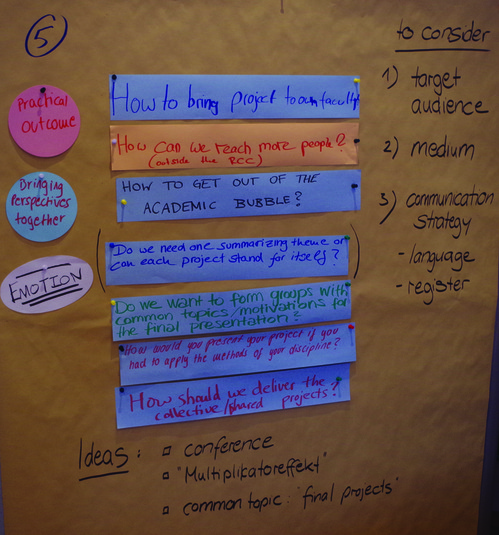 5
Practical
outcome
Bringing
Perspectives
together
EMOTION
How to bring project to own faculty
How can we reach more people?
(outside the RCC)
HOW TO GET OUT OF THE
ACADEMIC BUBBLE?
(Do we need one summarizing theme or
can each project stand for itself?)
Do we want to form groups with
common topics/motivations for
the final presentation?
How would you present your project if you
had to apply the methods of your discipline?
How should we deliver the
collective/shared projects?
to consider
1) target
audience
2) medium
3) communication
strategy
- language
- register
Ideas: □ conference
□ "Multiplikatoreffekt"
□ common topic: "final projects"